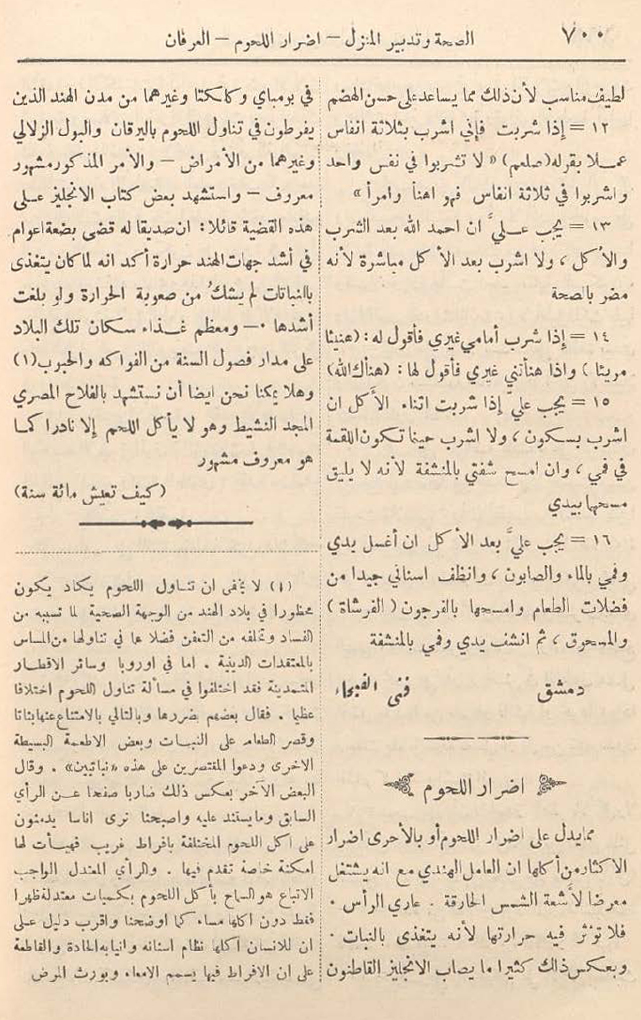 ٧٠٠ الصحة وتدبير المنزل — اضرار اللحوم — العرفان
لطيف مناسب لأن ذلك مما يساعد على حسن الهضم
١٢ = إذا شربت فإني اشرب بثلاثة انفاس
عملا بقوله (صلعم) « لا تشربوا في نفس واحد
واشربوا في ثلاثة انفاس فهو اهنأ وامرأ »
١٣ = يجب عليَّ ان احمد الله بعد الشرب
والأكل ، ولا اشرب بعد الأكل مباشرة لأنه
مضر بالصحة
١٤ = إذا شرب أمامي غيري فأقول له : (هنيئا
مريئا) واذا هنأني غيري فأقول لها : (هنأك الله)
١٥ = يجب عليَّ إذا شربت اثناء الأكل ان
اشرب بسكون ، ولا اشرب حينما تكون اللقمة
في فمي ، وان امسح شفتي بالمنشفة لأنه لا يليق
مسحها بيدي
١٦ = يجب عليَّ بعد الأكل ان أغسل يدي
وفمي بالماء والصابون ، وانظف اسناني جيدا من
فضلات الطعام وامسحها بالفرجون ( الفرشاة )
والمسحوق ، ثم انشف يدي وفمي بالمنشفة
دمشق فتى الفيحاء
اضرار اللحوم
مما يدل على اضرار اللحوم أو بالأحرى اضرار
الاكثار من أكلها ان العامل الهندي مع انه يشتغل
معرضا لأشعة الشمس الحارقة . عاري الرأس .
فلا تؤثر فيه حرارتها لأنه يتغذى بالنبات .
وبعكس ذلك كثيرا ما يصاب الانجليز القاطنون
في بومباي وكالكتا وغيرهما من مدن الهند الذين
يفرطون في تناول اللحوم باليرقان والبول الزلالي
وغيرهما من الأمراض — والأمر المذكور مشهور
معروف — واستشهد بعض كتاب الانجليز على
هذه القضية قائلا : ان صديقا له قضى بضعة اعوام
في أشد جهات الهند حرارة أكد انه لما كان يتغذى
بالنباتات لم يشك من صعوبة الحرارة ولو بلغت
أشدها .— ومعظم غذاء سكان تلك البلاد
على مدار فصول السنة من الفواكه والحبوب (١)
وهلا يمكنا نحن ايضا أن نستشهد بالفلاح المصري
المجد النشيط وهو لا يأكل اللحم إلا نادرا كما
هو معروف مشهور
(كيف تعيش مائة سنة)
(١) لا يخفى ان تناول اللحوم يكاد يكون
محظورا في بلاد الهند من الوجهة الصحية لما تسببه من
الفساد وتخلفه من التعفن فضلا عما في تناولها من المساس
بالمعتقدات الدينية . اما في اوروبا وسائر الاقطار
المتمدينة فقد اختلفوا في مسألة تناول اللحوم اختلافا
عظيما . فقال بعضهم بضررها وبالتالي بالامتناع عنها بتاتا
وقصر الطعام على النبات وبعض الاطعمة البسيطة
الاخرى ودعوا المقتصرين على هذه «نباتيين» . وقال
البعض الآخر بعكس ذلك ضاربا صفحا عن الرأي
السابق وما يستند عليه واصبحنا نرى اناسا يدمنون
على اكل اللحوم المختلفة بافراط غريب فهيأت لها
امكنة خاصة تقدم فيها . والرأي المعتدل الواجب
الاتباع هو السماح بأكل اللحوم بكميات معتدلة ظهرا
فقط دون اكلها مساء كما اوضحنا واقرب دليل على
ان للانسان أكلها نظام اسنانه وانيابه الحادة والقاطعة
على ان الافراط فيها يسمم الامعاء ويورث المرض